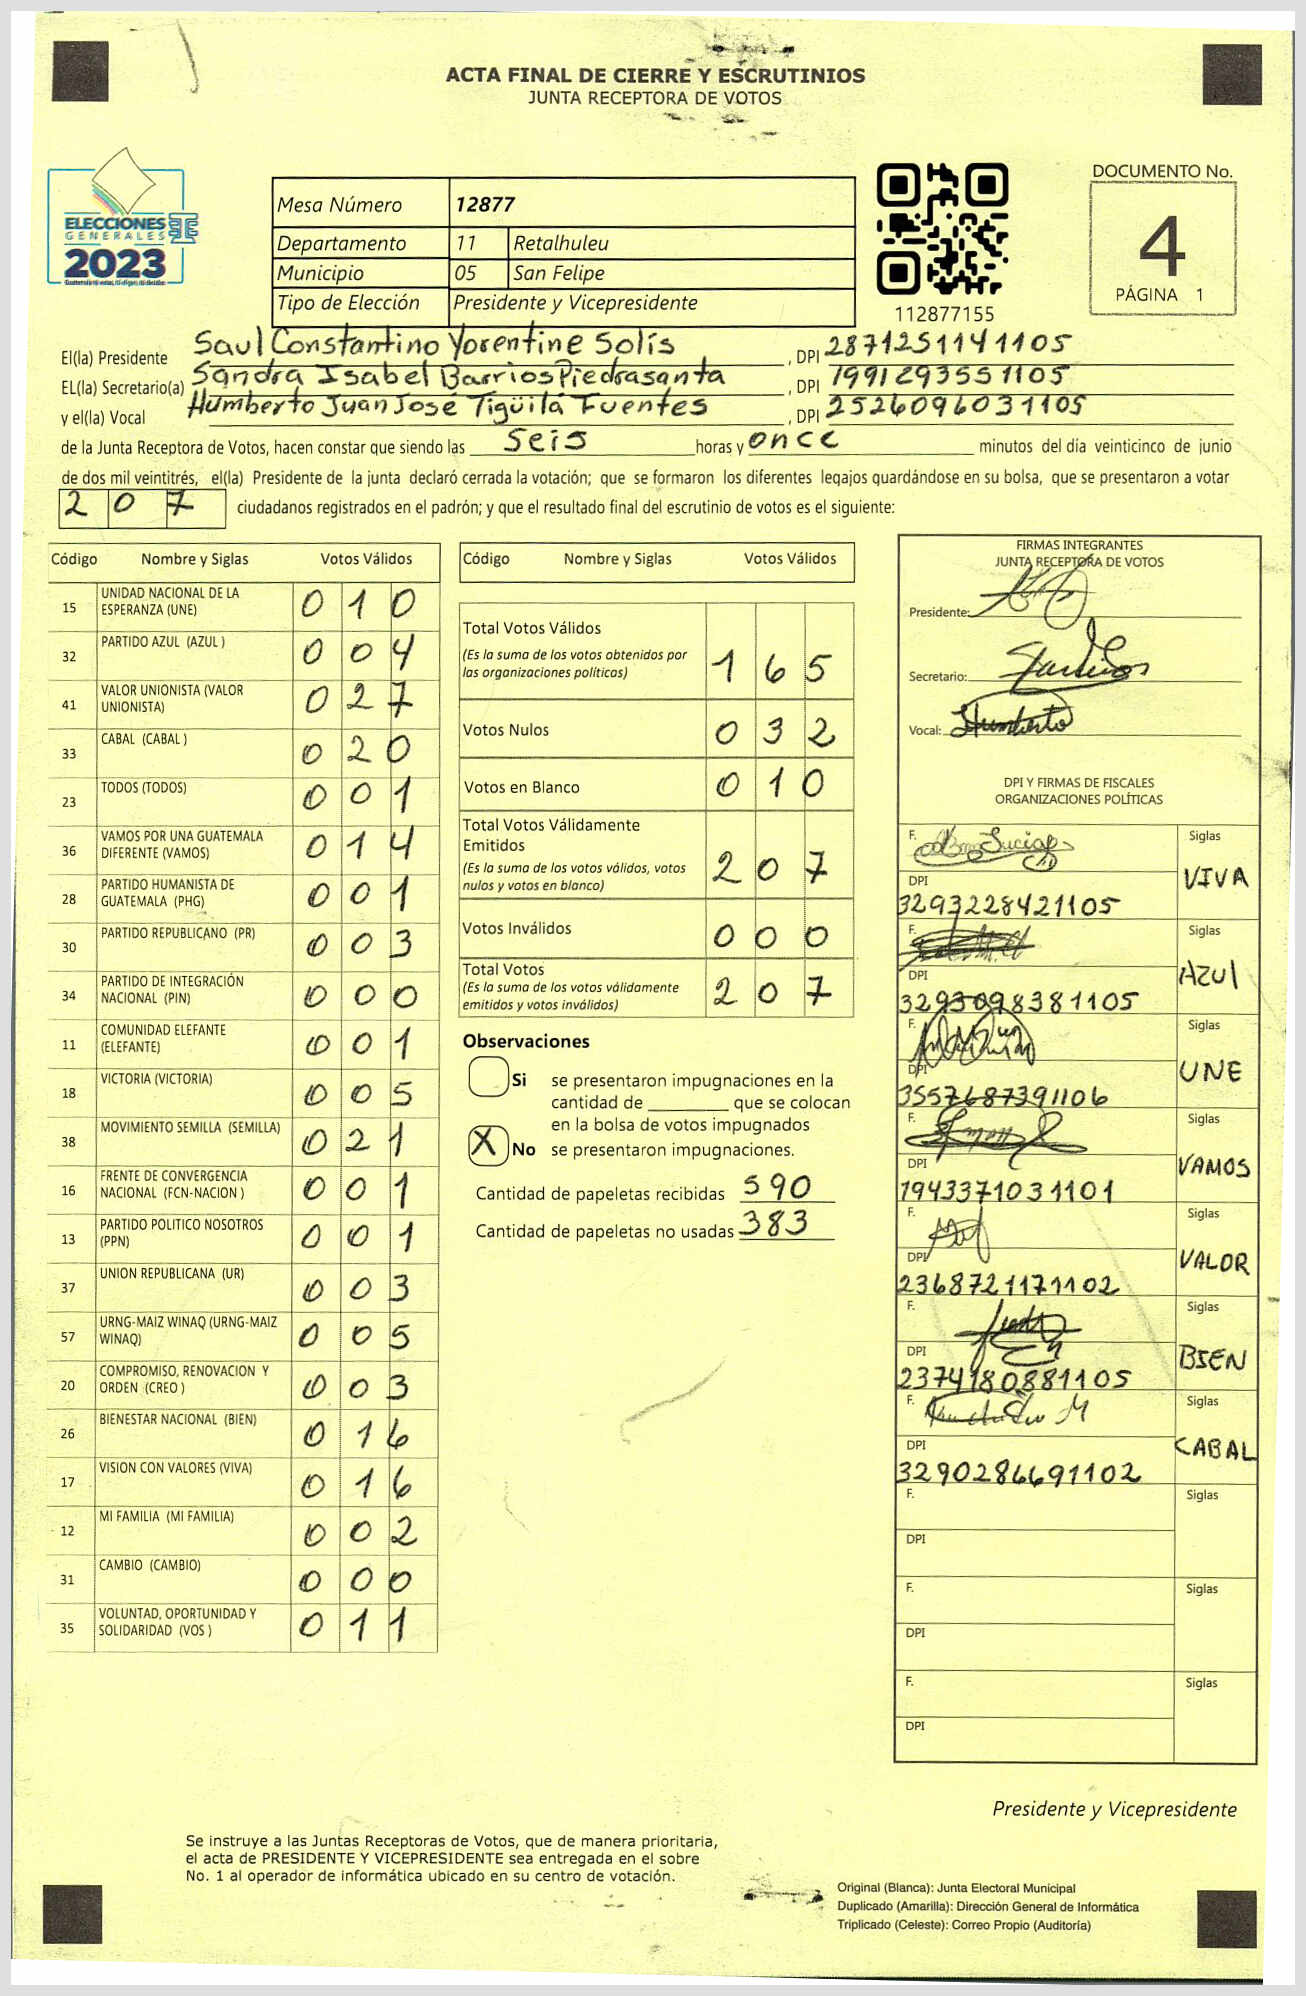 ACTA FINAL DE CIERRE Y ESCRUTINIOS
JUNTA RECEPTORA DE VOTOS
ELECCIONES
GENERALES
2023
Mesa Número 12877
Departamento 11 Retalhuleu
Municipio 05 San Felipe
Tipo de Elección Presidente y Vicepresidente
112877155
DOCUMENTO No.
4
PÁGINA 1
El(la) Presidente Saul Constantino Yorentine Solís, DPI 2871251141105
EL(la) Secretario(a) Sandra Isabel Barrios Piedrasanta, DPI 1991293551105
y el(la) Vocal Humberto Juan José Tigüilá Fuentes, DPI 2526096031105
de la Junta Receptora de Votos, hacen constar que siendo las seis horas y once minutos del día veinticinco de junio
de dos mil veintitrés, el(la) Presidente de la junta declaró cerrada la votación; que se formaron los diferentes legajos guardándose en su bolsa, que se presentaron a votar
207 ciudadanos registrados en el padrón; y que el resultado final del escrutinio de votos es el siguiente:
Código Nombre y Siglas Votos Válidos
15 UNIDAD NACIONAL DE LA ESPERANZA (UNE) 010
32 PARTIDO AZUL (AZUL ) 004
41 VALOR UNIONISTA (VALOR UNIONISTA) 027
33 CABAL (CABAL ) 020
23 TODOS (TODOS) 001
36 VAMOS POR UNA GUATEMALA DIFERENTE (VAMOS) 014
28 PARTIDO HUMANISTA DE GUATEMALA (PHG) 001
30 PARTIDO REPUBLICANO (PR) 003
34 PARTIDO DE INTEGRACIÓN NACIONAL (PIN) 000
11 COMUNIDAD ELEFANTE (ELEFANTE) 001
18 VICTORIA (VICTORIA) 005
38 MOVIMIENTO SEMILLA (SEMILLA) 021
16 FRENTE DE CONVERGENCIA NACIONAL (FCN-NACION ) 001
13 PARTIDO POLITICO NOSOTROS (PPN) 001
37 UNION REPUBLICANA (UR) 003
57 URNG-MAIZ WINAQ (URNG-MAIZ WINAQ) 005
20 COMPROMISO, RENOVACION Y ORDEN (CREO ) 003
26 BIENESTAR NACIONAL (BIEN) 016
17 VISION CON VALORES (VIVA) 016
12 MI FAMILIA (MI FAMILIA) 002
31 CAMBIO (CAMBIO) 000
35 VOLUNTAD, OPORTUNIDAD Y SOLIDARIDAD (VOS ) 011
Código Nombre y Siglas Votos Válidos
Total Votos Válidos 165
(Es la suma de los votos obtenidos por las organizaciones políticas)
Votos Nulos 032
Votos en Blanco 010
Total Votos Válidamente Emitidos 207
(Es la suma de los votos válidos, votos nulos y votos en blanco)
Votos Inválidos 000
Total Votos 207
(Es la suma de los votos válidamente emitidos y votos inválidos)
Observaciones
Si se presentaron impugnaciones en la
cantidad de ________ que se colocan
en la bolsa de votos impugnados
X No se presentaron impugnaciones.
Cantidad de papeletas recibidas 590
Cantidad de papeletas no usadas 383
FIRMAS INTEGRANTES
JUNTA RECEPTORA DE VOTOS
Presidente:
Secretario:
Vocal: Humberto
DPI Y FIRMAS DE FISCALES
ORGANIZACIONES POLÍTICAS
F. Siglas VIVA
DPI 3293228421105
F. Siglas AZUL
DPI 3293098381105
F. Siglas UNE
DPI 3557687391106
F. Siglas VAMOS
DPI 1943371031101
F. Siglas VALOR
DPI 2368721171102
F. Siglas BIEN
DPI 2374180881105
F. Siglas CABAL
DPI 3290286691102
F. Siglas
DPI
F. Siglas
DPI
F. Siglas
DPI
Presidente y Vicepresidente
Se instruye a las Juntas Receptoras de Votos, que de manera prioritaria,
el acta de PRESIDENTE Y VICEPRESIDENTE sea entregada en el sobre
No. 1 al operador de informática ubicado en su centro de votación.
Original (Blanca): Junta Electoral Municipal
Duplicado (Amarilla): Dirección General de Informática
Triplicado (Celeste): Correo Propio (Auditoría)